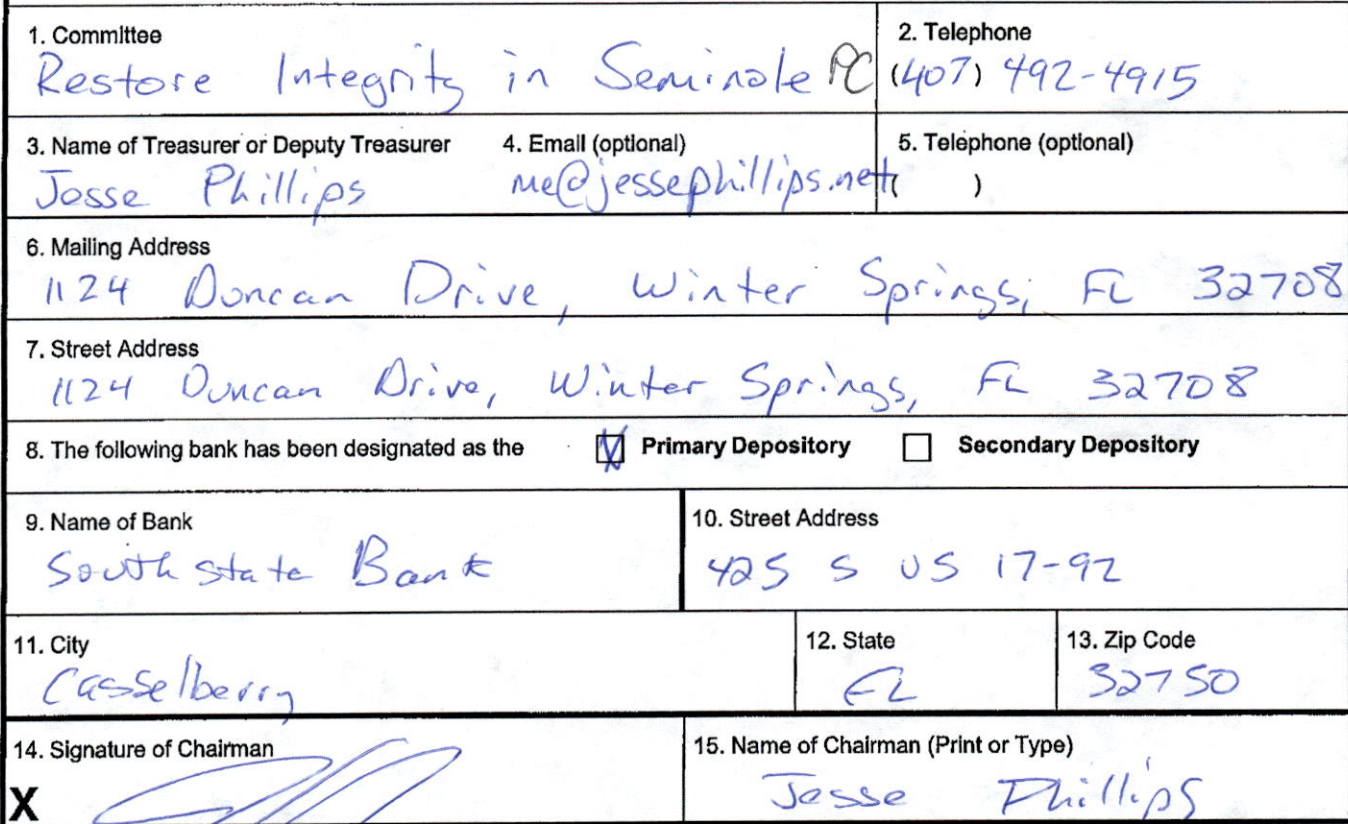 1. Committee
Restore Integrity in Seminole PC
2. Telephone
(407) 492-4915
3. Name of Treasurer or Deputy Treasurer
Jesse Phillips
4. Email (optional)
me@jessephillips.net
5. Telephone (optional)
( )
6. Mailing Address
1124 Duncan Drive, Winter Springs, FL 32708
7. Street Address
1124 Duncan Drive, Winter Springs, FL 32708
8. The following bank has been designated as the Primary Depository Secondary Depository
9. Name of Bank
Southstate Bank
10. Street Address
425 S US 17-92
11. City
Casselberry
12. State
FL
13. Zip Code
32750
14. Signature of Chairman
X
15. Name of Chairman (Print or Type)
Jesse Phillips